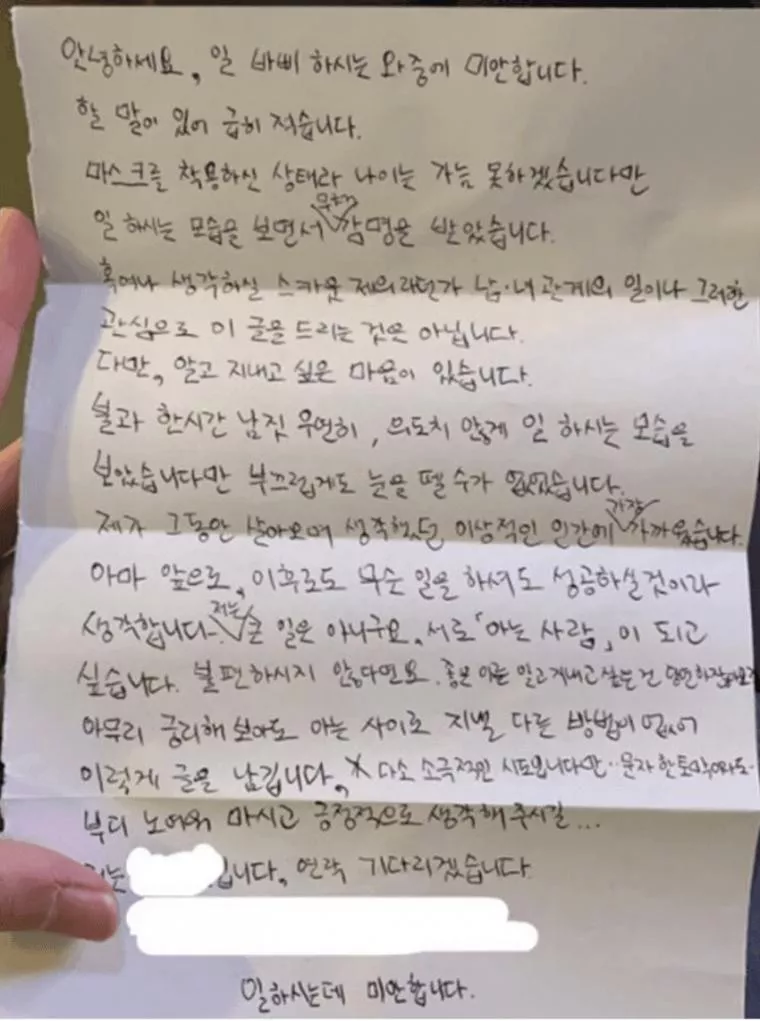 안녕하세요, 일 바삐 하시는 와중에 미안합니다.
할 말이 있어 급히 적습니다.
마스크를 착용하신 상태라 나이는 가늠 못하겠습니다만
일 하시는 모습을 보면서 무척 감명을 받았습니다.
혹여나 생각하실 스카웃 제의라던가 남·녀 관계의 일이나 그러한
관심으로 이 글을 드리는 것은 아닙니다.
다만, 알고 지내고 싶은 마음이 있습니다.
불과 한시간 남짓 우연히, 의도치 않게 일 하시는 모습을
보았습니다만 부끄럽게도 눈을 뗄 수가 없었습니다.
제가 그동안 살아오며 생각했던 이상적인 인간에 가장 가까웠습니다.
아마 앞으로, 이후로도 무슨 일을 하셔도 성공하실것이라
생각합니다. 저는 큰 일은 아니구요, 서로 「아는 사람」이 되고
싶습니다. 불편하시지 않다면요. 좋은 이는 알고지내고 싶는건 당연하잖아요
아무리 궁리해 보아도 아는 사이로 지낼 다른 방법이 없어
이렇게 글을 남깁니다, X 다소 소극적인 시도입니다만‥문자 한토막이라도‥
부디 노여워 마시고 긍정적으로 생각해 주시길...
저는 입니다, 연락 기다리겠습니다.
일하시는데 미안합니다.